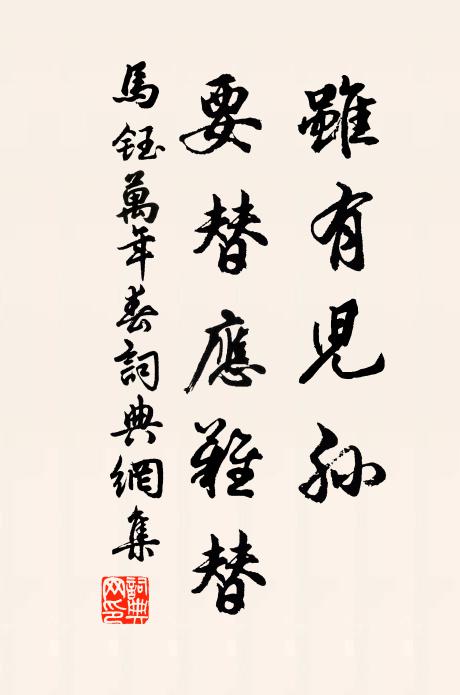 雖有児孫
要替應難替
馬鈺萬年春詞典網集
詞典網印